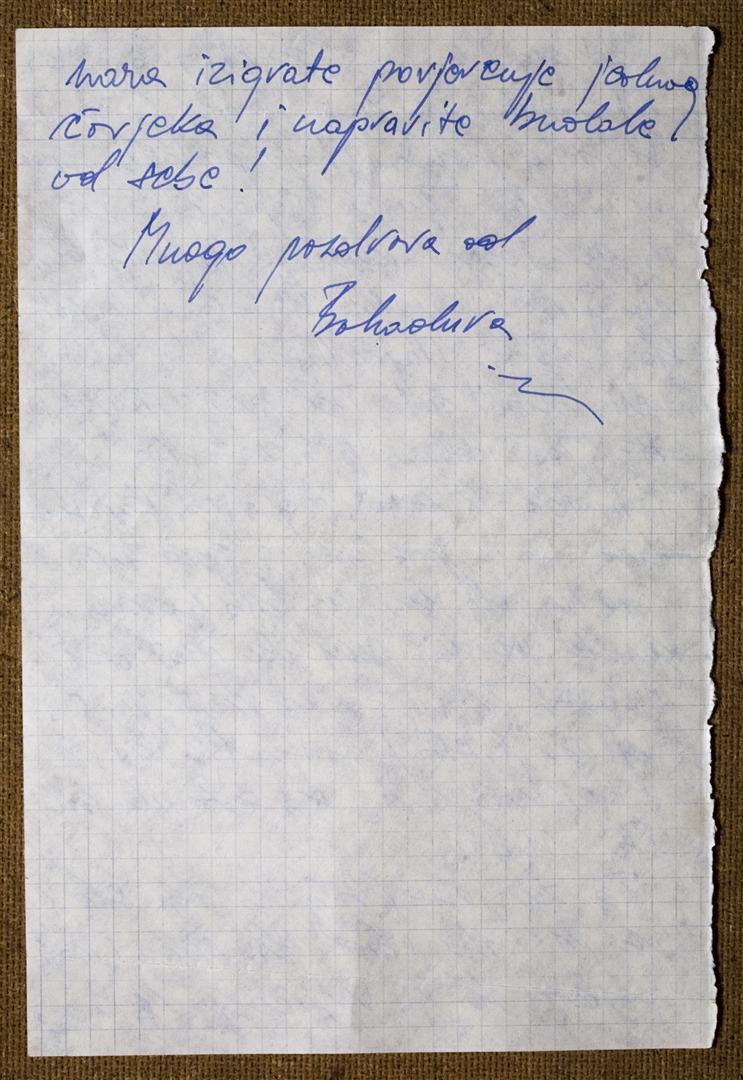 nara izigrate povjerenje jednog
čovjeka i napravite budale
od sebe!
Mnogo pozdrava od